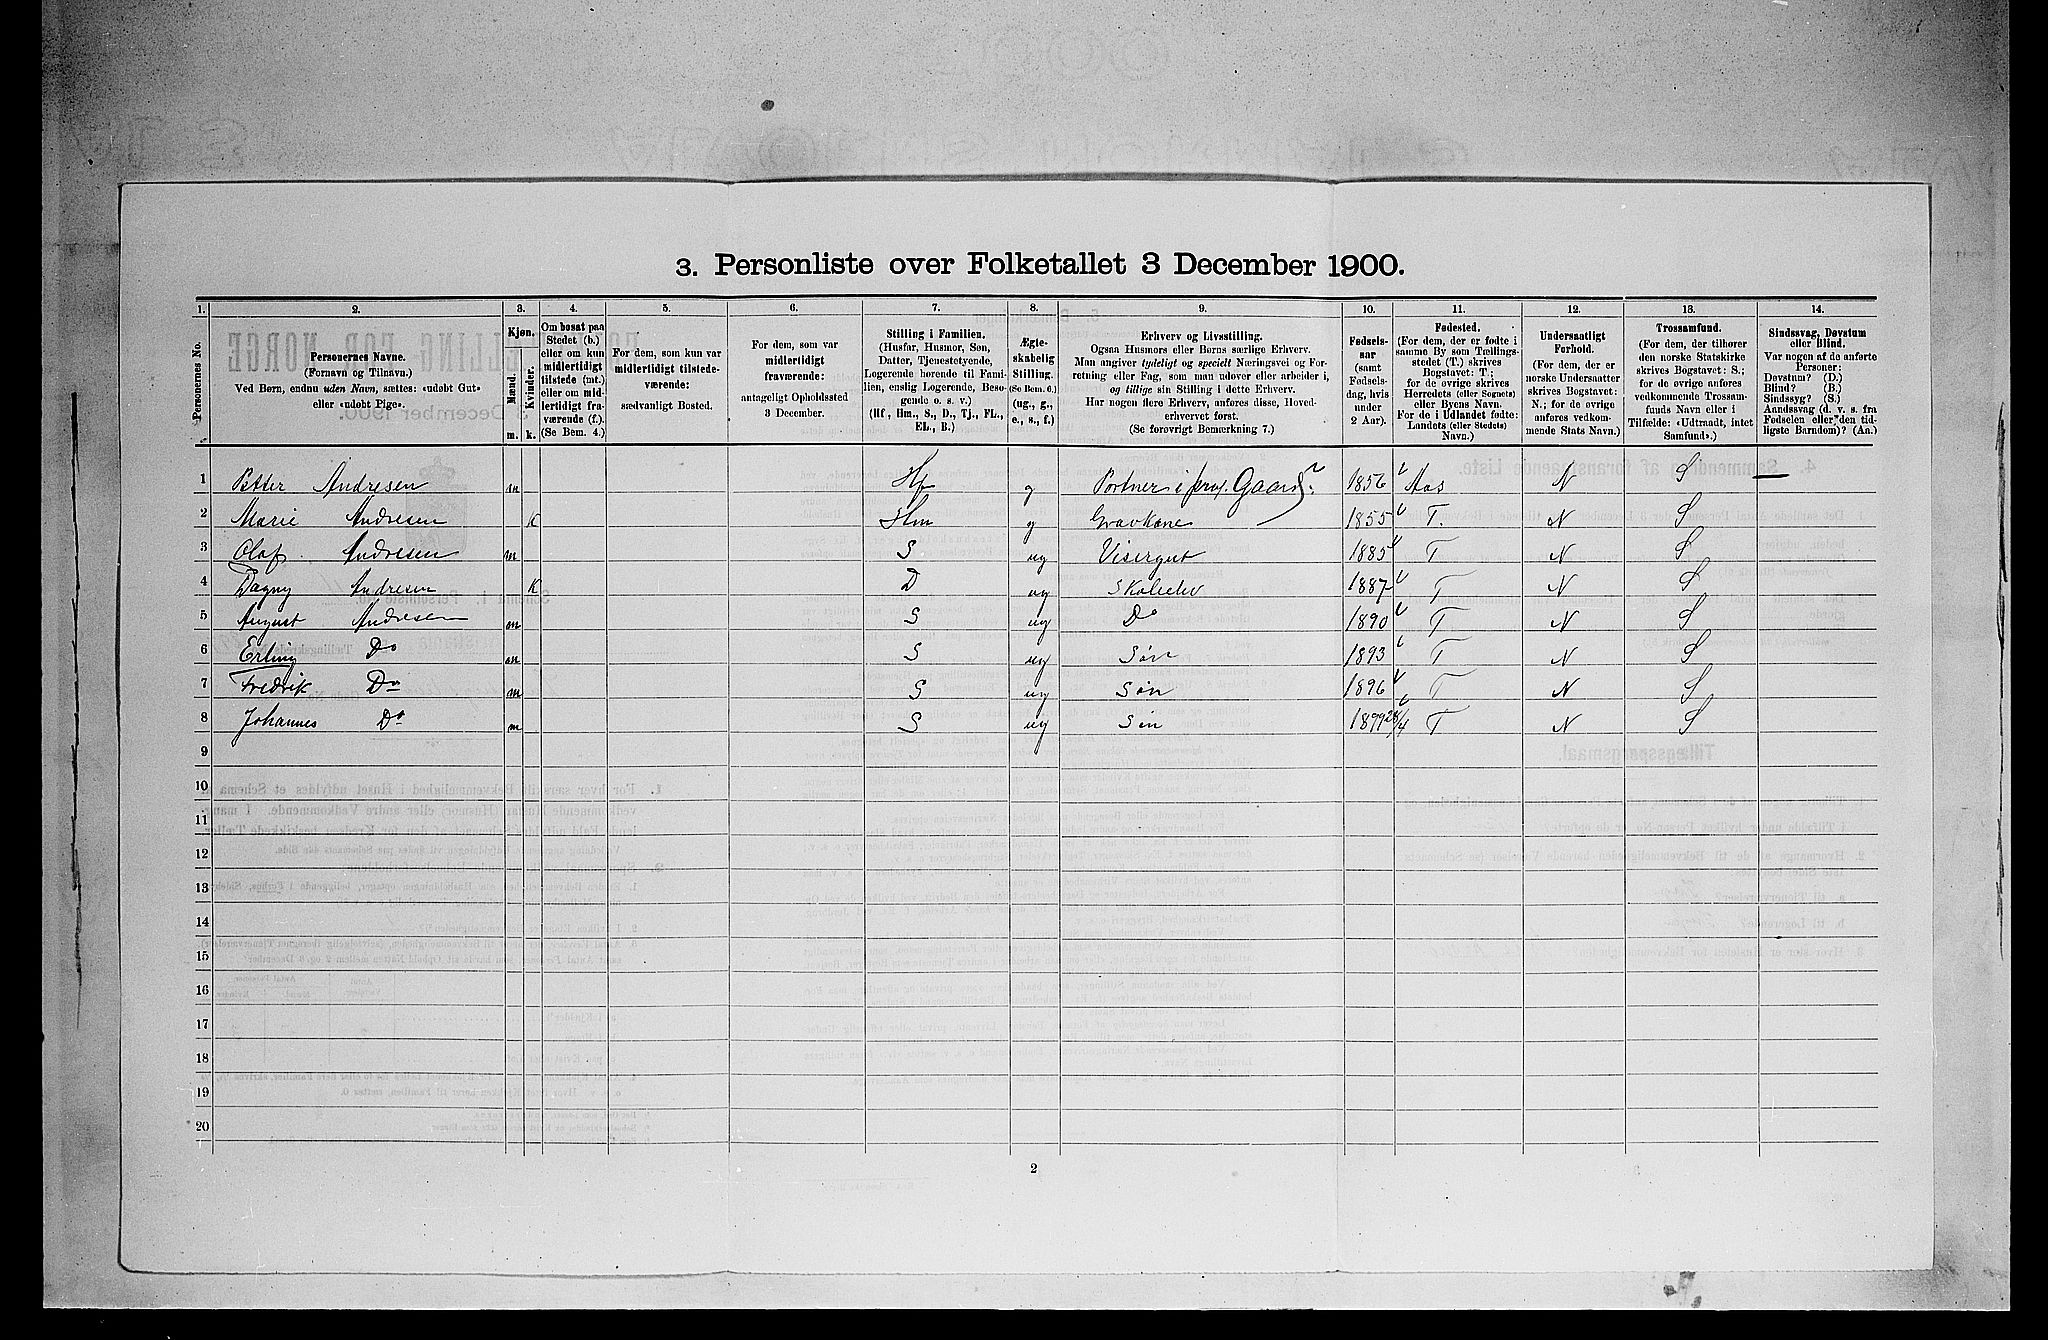 3. Personliste over Folketallet 3 December 1900.
1. 2. 3. 4. 5. 6. 7. 8. 9. 10. 11. 12. 13. 14.
Personernes No.
Personernes Navne.
(Fornavn og Tilnavn.)
Ved Børn, endnu uden Navn, sættes: «udøbt Gut»
eller «udøbt Pige».
Kjøn.
Mænd.
Kvinder.
m. k.
Om bosat paa
Stedet (b.)
eller om kun
midlertidigt
tilstede (mt.)
eller om mid-
lertidigt fra-
værende (f.).
(Se Bem. 4.)
For dem, som kun var
midlertidigt tilstede-
værende:
sædvanligt Bosted.
For dem, som var
midlertidigt
fraværende:
antageligt Opholdssted
3 December.
Stilling i Familien.
(Husfar, Husmor, Søn,
Datter, Tjenestetyende,
Logerende hørende til Fami-
lien, enslig Logerende, Besø-
gende o. s. v.)
(Hf, Hm., S., D., Tj., FL.,
EL., B.)
Ægte-
skabelig
Stilling.
(Se Bem. 6.)
(ug., g.,
e., s., f.)
Erhverv og Livsstilling.
Ogsaa Husmors eller Børns særlige Erhverv.
Man angiver tydeligt og specielt Næringsvei og For-
retning eller Fag, som man udøver eller arbeider i,
og tillige sin Stilling i dette Erhverv.
Har nogen flere Erhverv, anføres disse, Hoved-
erhvervet først.
(Se forøvrigt Bemærkning 7.)
Fødsels-
aar
(samt
Fødsels-
dag, hvis
under
2 Aar).
Fødested.
(For dem, der er fødte i
samme By som Tællings-
stedet (T.) skrives
Bogstavet: T.;
for de øvrige skrives
Herredets (eller Sognets)
eller Byens Navn.
For de i Udlandet fødte:
Landets (eller Stedets)
Navn.)
Undersaatligt
Forhold.
(For dem, der er
norske Undersaatter
skrives Bogstavet:
N.; for de øvrige
anføres vedkom-
mende Stats Navn.)
Trossamfund.
(For dem, der tilhører
den norske Statskirke
skrives Bogstavet: S.;
for de øvrige anføres
vedkommende Trossam-
funds Navn eller i
Tilfælde: «Udtraadt, intet
Samfund».)
Sindssvag, Døvstum
eller Blind.
Var nogen af de anførte
Personer:
Døvstum? (D.)
Blind? (B.)
Sindssyg? (S.)
Aandssvag (d. v. s. fra
Fødselen eller den tid-
ligste Barndom)? (Aa.)
1 Petter Andresen m Hf g Portner i priv. Gaard 1856 Aas N S —
2 Marie Andresen K Hm g 1855 T. N S
3 Olaf Andresen m S ug Visergut 1885 T N S
4 Dagny Andresen K D ug Skoleelev 1887 T N S
5 August Andresen m S ug Do 1890 T N S
6 Erling Do m S ug Søn 1893 T N S
7 Fredrik Do m S ug Søn 1896 T N S
8 Johannes Do m S ug Søn 1899 28/4 T N S
9
10
11
12
13
14
15
16
17
18
19
20
2